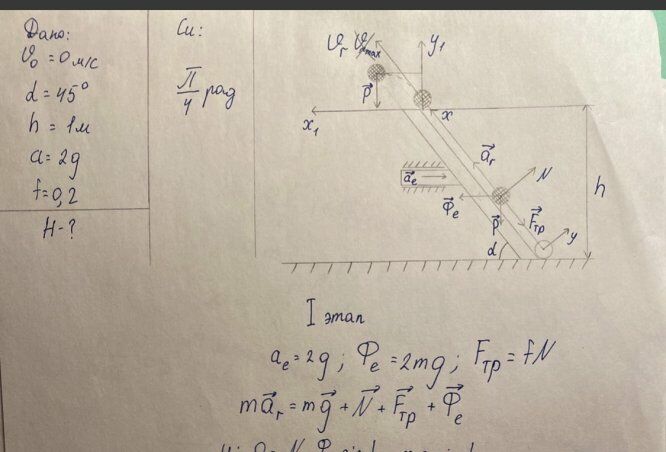 Дано:
v₀ = 0 м/с
d = 45°
h = 1м
a = 2g
f = 0,2
H - ?
Си:
π/4 рад
v⃗r
max
y₁
P⃗
x₁
x
a⃗r
a⃗e
N
Ф⃗e
P⃗
F⃗тр
h
d
y
I этап
ae = 2g ; Фe = 2mg ; Fтр = fN
ma⃗r = mg⃗ + N⃗ + F⃗тр + Ф⃗e